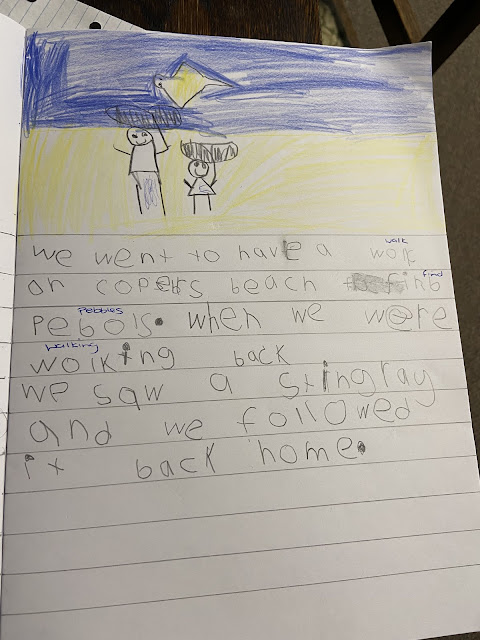 walk
we went to have a wolk
find
on copers beach finb
Pebbles
pebols. when we were
walking
wolking back
we saw a stingray
and we followed
it back home.